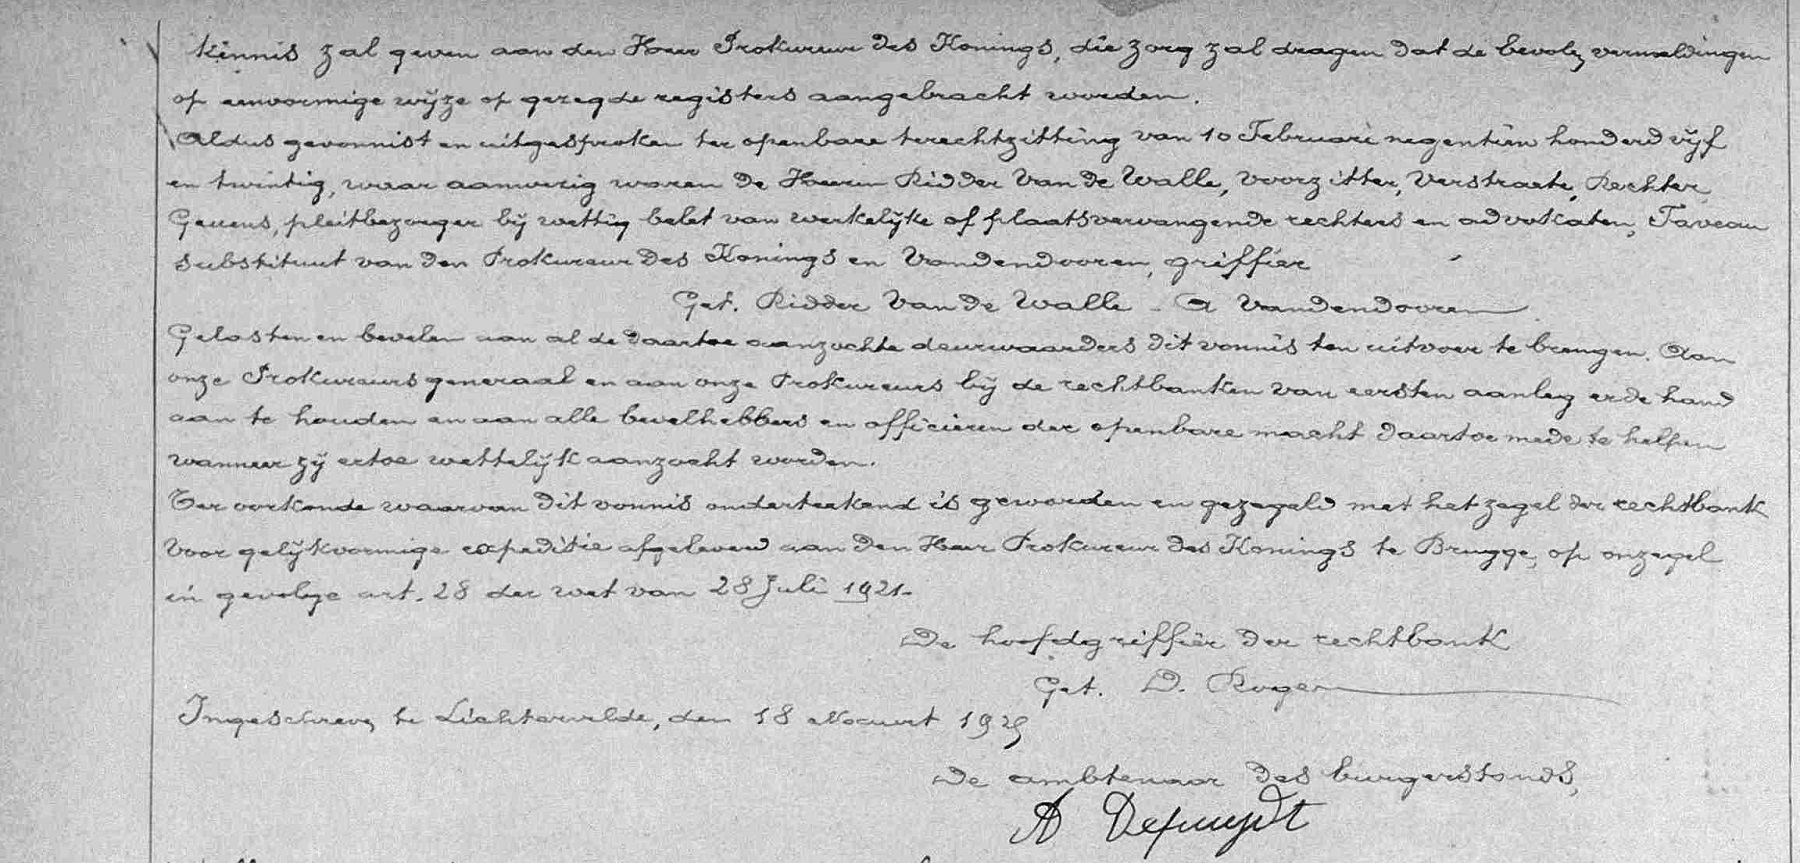 kennis zal geven aan den Heer Prokureur des Konings, die zorg zal dragen dat de bevolg vermeldingen
op eenvormige wijze op gezegde registers aangebracht worden.
Aldus gevonnist en uitgesproken ter openbare terechtzitting van 10 Februari negentien honderd vijf
en twintig, waar aanwezig waren de Heeren Ridder Van de Walle, voorzitter, Verstraete, Rechter,
Geuens, pleitbezorger bij wettig belet van werkelijke of plaatsvervangende rechters en advokaten, Taveau
substituut van den Prokureur des Konings en Vandendooren, griffier
Get. Ridder Van de Walle - A Vandendooren
Gelasten en bevelen aan al de daartoe aanzochte deurwaarders dit vonnis ten uitvoer te brengen. Aan
onze Prokureurs generaal en aan onze Prokureurs bij de rechtbanken van eersten aanleg er de hand
aan te houden en aan alle bevelhebbers en officieren der openbare macht daartoe mede te helpen
wanneer zij ertoe wettelijk aanzocht worden.
Ter oorkonde waarvan dit vonnis onderteekend is geworden en gezegeld met het zegel der rechtbank
Voor gelijkvormige expeditie afgeleverd aan den Heer Prokureur des Konings te Brugge, op onzegel
in gevolge art. 28 der wet van 28 Juli 1921.
De hoofdgriffier der rechtbank
Get. D. Roger
Ingeschreven te Lichtervelde, den 18 Maart 1925
De ambtenaar des burgerstands,
A